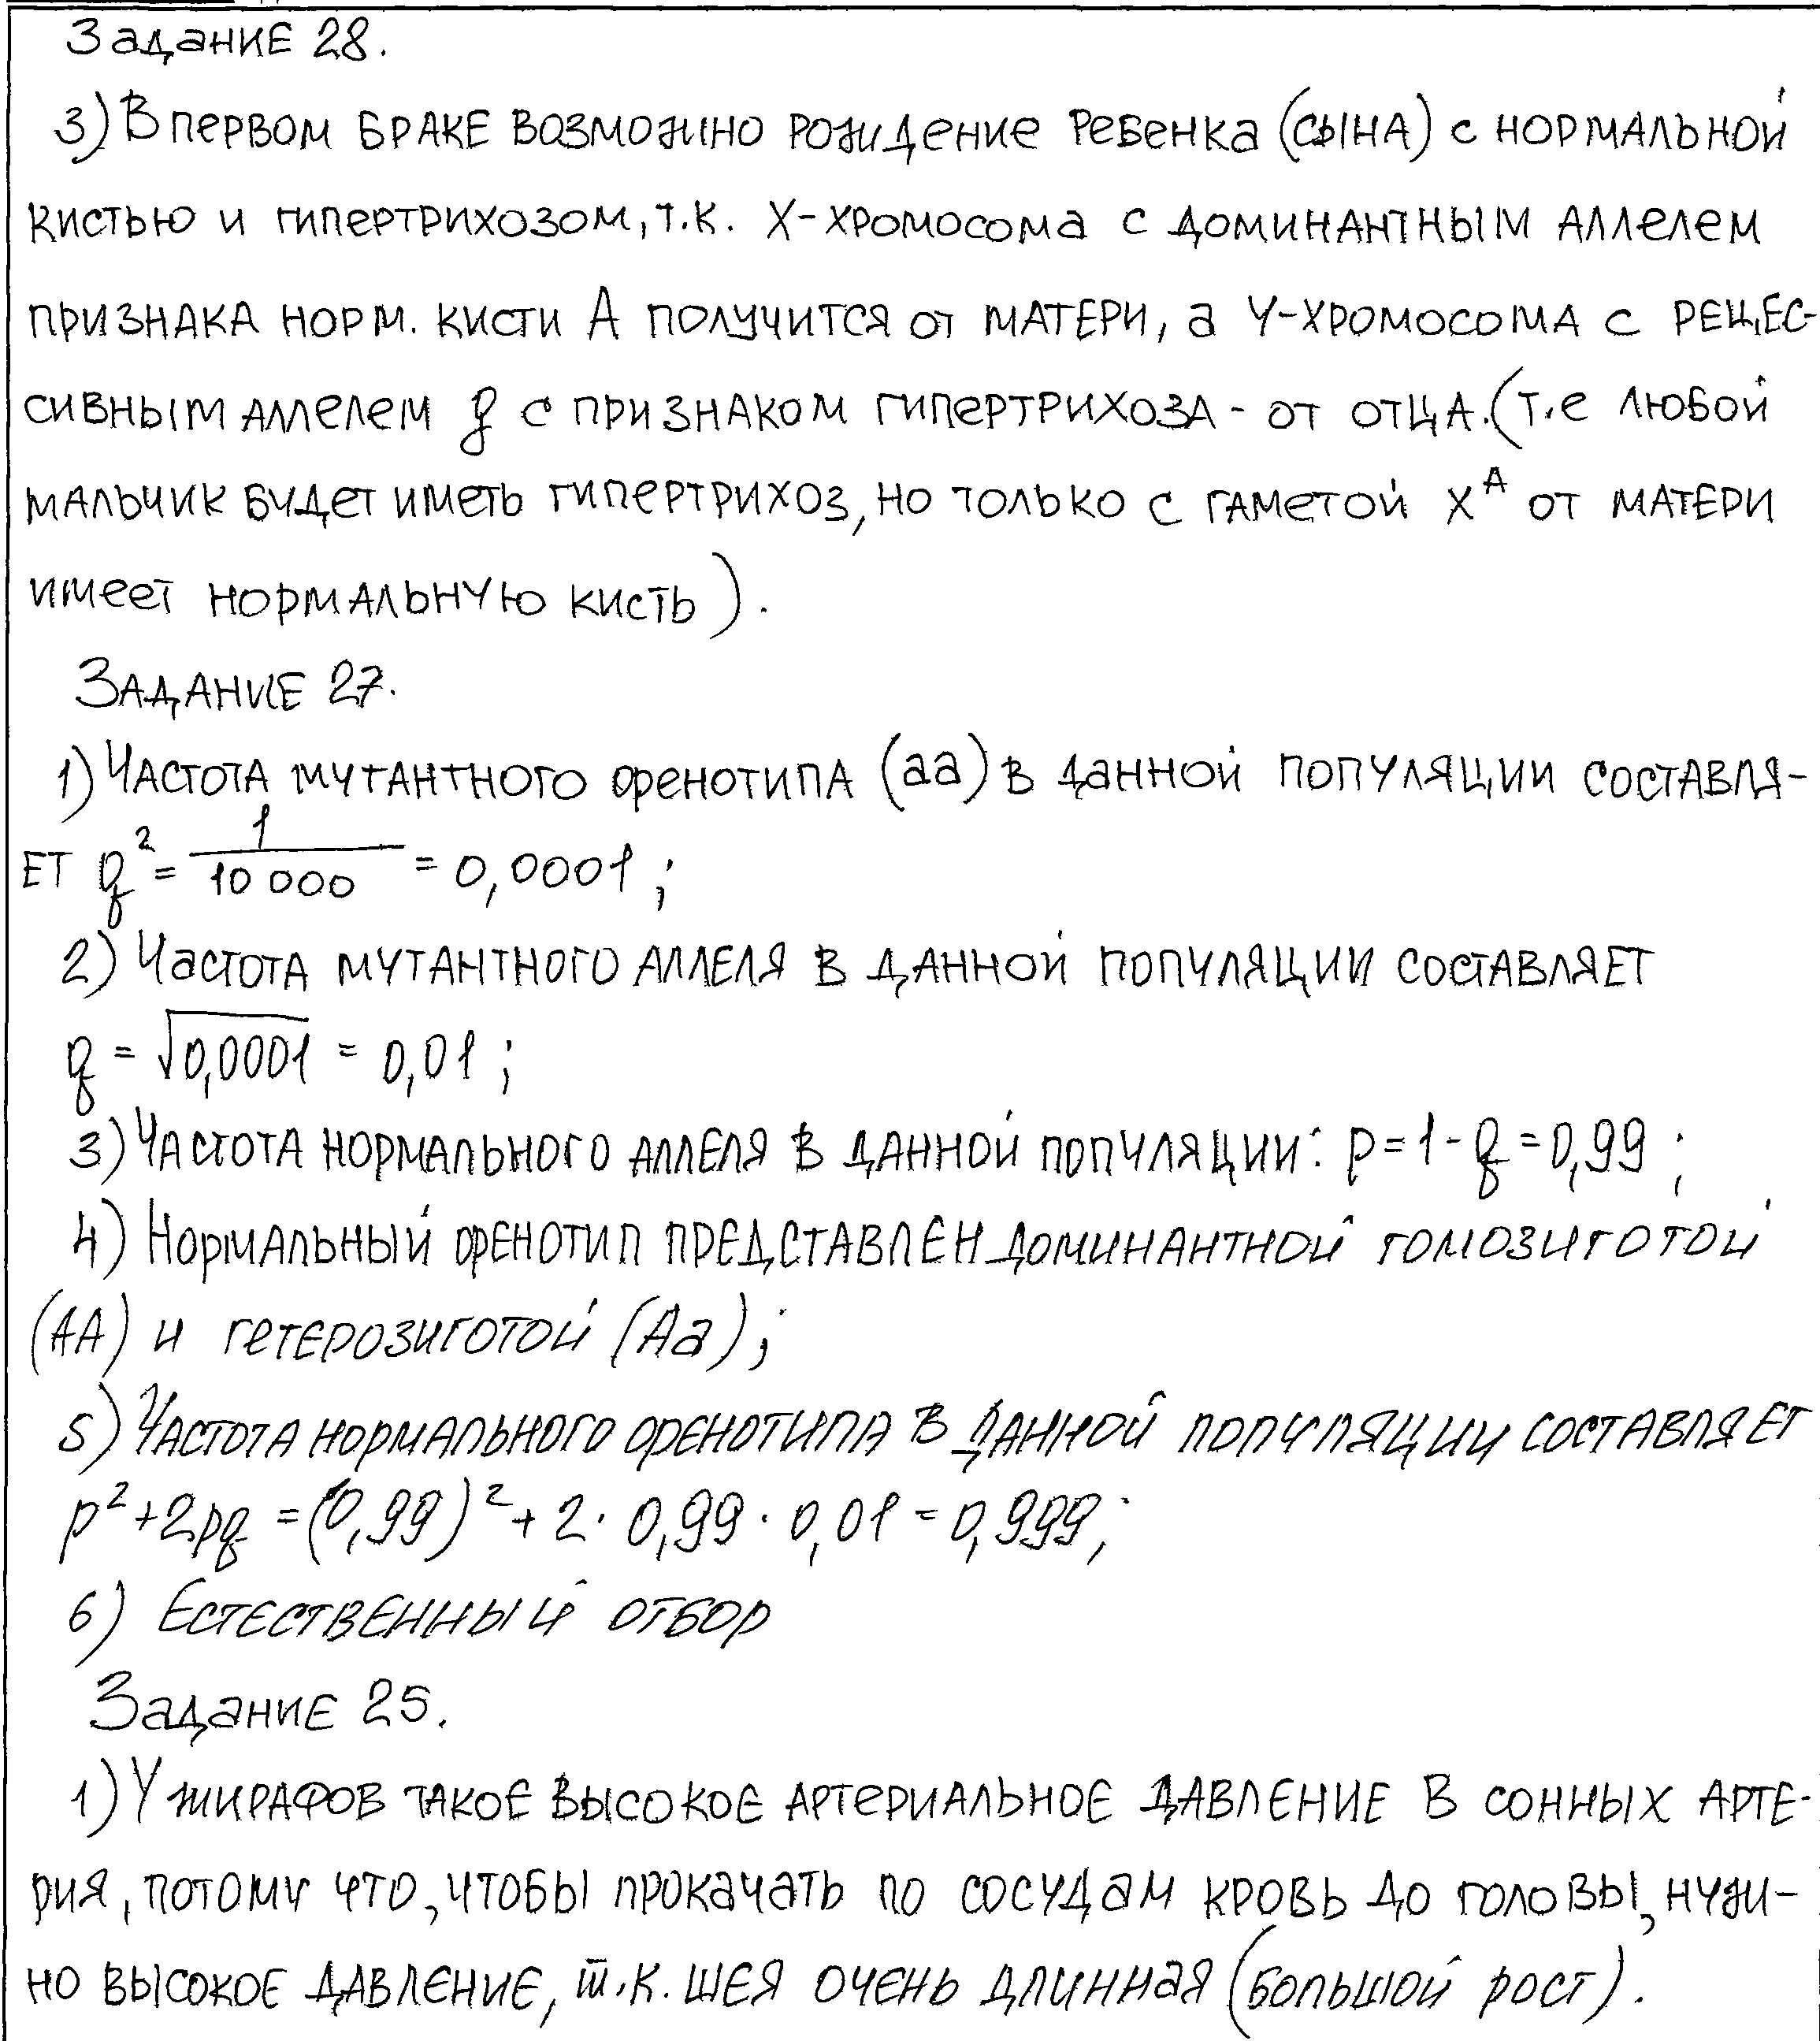 Задание 28.
3) В первом браке возможно рождение ребенка (сына) с нормальной
кистью и гипертрихозом, т.к. Х-хромосома с доминантным аллелем
признака норм. кисти А получится от матери, а Y-хромосома с рецес-
сивным аллелем g с признаком гипертрихоза - от отца. (т.е любой
мальчик будет иметь гипертрихоз, но только с гаметой X^A от матери
имеет нормальную кисть).
Задание 27.
1) Частота мутантного фенотипа (аа) в данной популяции составля-
ет q² = 1/10 000 = 0,0001 ;
2) Частота мутантного аллеля в данной популяции составляет
q = √0,0001 = 0,01 ;
3) Частота нормального аллеля в данной популяции: p = 1 - q = 0,99 ;
4) Нормальный фенотип представлен доминантной гомозиготой
(АА) и гетерозиготой (Аа);
5) Частота нормального фенотипа в данной популяции составляет
p² + 2pq = (0,99)² + 2 · 0,99 · 0,01 = 0,999;
6) Естественный отбор
Задание 25.
1) У жирафов такое высокое артериальное давление в сонных арте-
рия, потому что, чтобы прокачать по сосудам кровь до головы, нуж-
но высокое давление, т.к. шея очень длинная (большой рост).